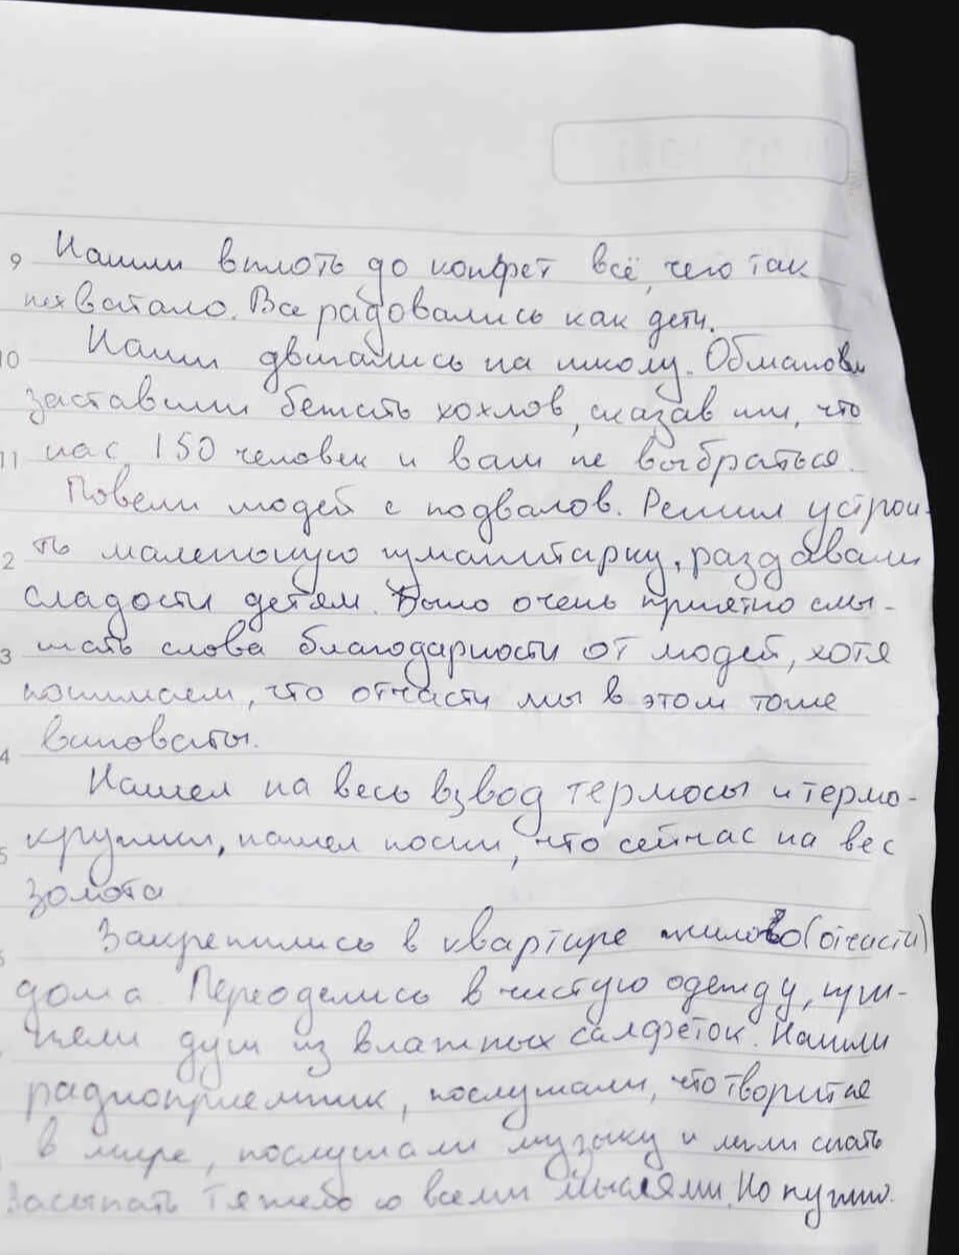 9 Нашли вплоть до конфет всё, чего так
нехватало. Все радовались как дети.
10 Наши двигались на школу. Обманом
заставили бежать хохлов, сказав им, что
11 нас 150 человек и вам не выбраться.
Повели людей с подвалов. Решил устрои-
2 ть маленькую гуманитарку, раздавали
сладости детям. Было очень приятно слы-
3 шать слова благодарности от людей, хотя
понимаем, что отчасти мы в этом тоже
4 виноваты.
Нашел на весь взвод термосы и термо-
5 кружки, нашел носки, что сейчас на вес
золота
Закрепились в квартире жилого (отчасти)
дома. Переоделись в чистую одежду, при-
няли душ из влажных салфеток. Нашли
радиоприемник, послушали, что творится
в мире, послушали музыку и легли спать
Засыпать тяжело со всеми мыслями. Но нужно.